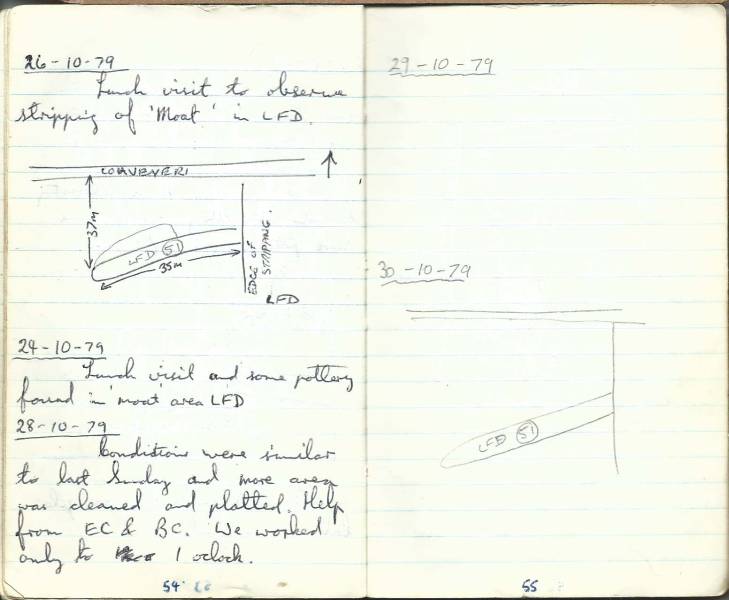 26-10-79
Lunch visit to observe
stripping of 'Moat' in LFD.
CONVEYER 1
37m
LFD 51
35m
EDGE OF
STRIPPING.
LFD
24-10-79
Lunch visit and some pottery
found in 'moat' area LFD
28-10-79
Conditions were similar
to last Sunday and more area
was cleaned and plotted. Help
from EC & BC. We worked
only to 1 oclock.
54
29-10-79
30-10-79
LFD 51
55